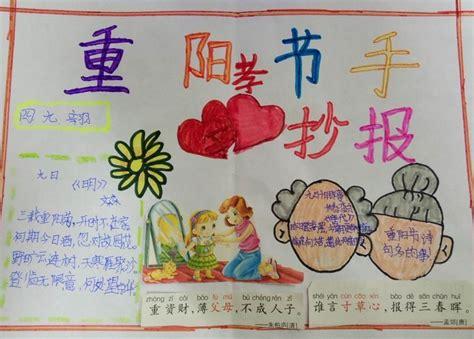 重阳节手
孝抄报
九日 《明》
文森
三载重阳菊,开时不在家
何期今日酒,忽对故园花
野旷云连树,天寒雁聚沙
登临无限意,何处望京
重阳节诗
zhòng zī cái báo fù mǔ bù chéng rén zǐ
重資財,薄父母,不成人子。
——朱柏庐(清)
shéi yán cùn cǎo xīn bào dé sān chūn huī
谁言寸草心,报得三春晖。
——孟郊(唐)